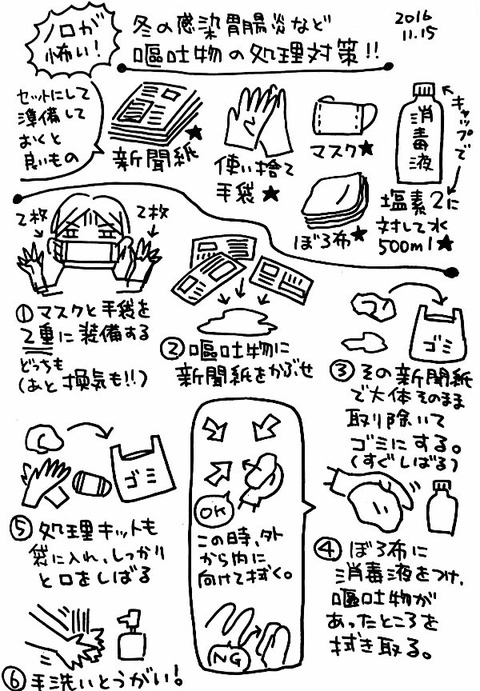 ノロが
怖い!
冬の感染胃腸炎など
嘔吐物の処理対策!!
2016
11.15
セットにして
準備して
おくと
良いもの
新聞紙★
使い捨て
手袋★
マスク★
ぼろ布★
消毒液
キャップで
塩素2に
対して水
500ml★
2枚
2枚
①マスクと手袋を
2重に装備する
どっちも
(あと換気も!!)
②嘔吐物に
新聞紙をかぶせ
ゴミ
③その新聞紙
で大体そのまま
取り除いて
ゴミにする。
(すぐしばる)
④ぼろ布に
消毒液をつけ、
嘔吐物が
あったところを
拭き取る。
OK
この時、外
から内に
向けて拭く。
NG
ゴミ
⑤処理キットも
袋に入れ、しっかり
と口をしばる
⑥手洗いとうがい!